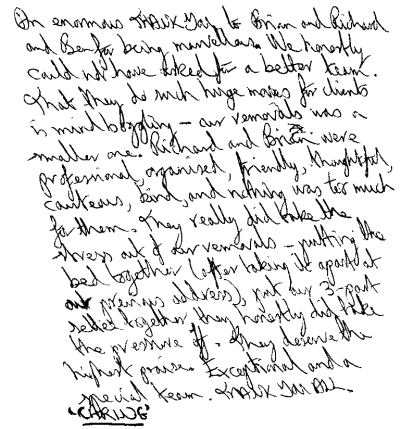 An enormous THANK YOU to Brian and Richard
and Ben for being marvellous. We honestly
could not have asked for a better team.
That they do such huge moves for clients
is mind boggling – our removals was a
smaller one. Richard and Brian were
professional, organised, friendly, thoughtful,
courteous, kind, and nothing was too much
for them. They really did take the
stress out of our removals – putting the
bed together (after taking it apart at
our previous address), put our 3-part
settee together they honestly did take
the pressure off. They deserve the
highest praise. Exceptional and a
special team. THANK YOU ALL.
"CARING"